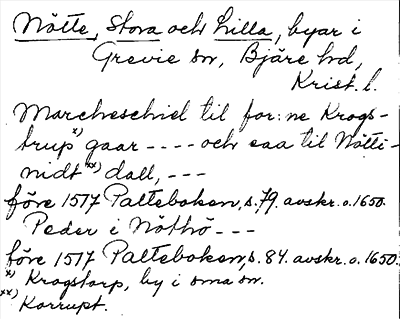 Nötte, Stora och Lilla, byar i
Grevie sn, Bjäre hd,
Krist. l.
Marcheschiel til for:ne Krogs-
trup x) gaar - - - - och saa til Nötti-
nidt xx) dall, - - -
före 1517 Palteboken, s. 79. avskr. o. 1650.
Peder i Nöthö - - -
före 1517 Palteboken, s. 84. avskr. o. 1650.
x) Krogstorp, by i sma sn.
xx) Korrupt.